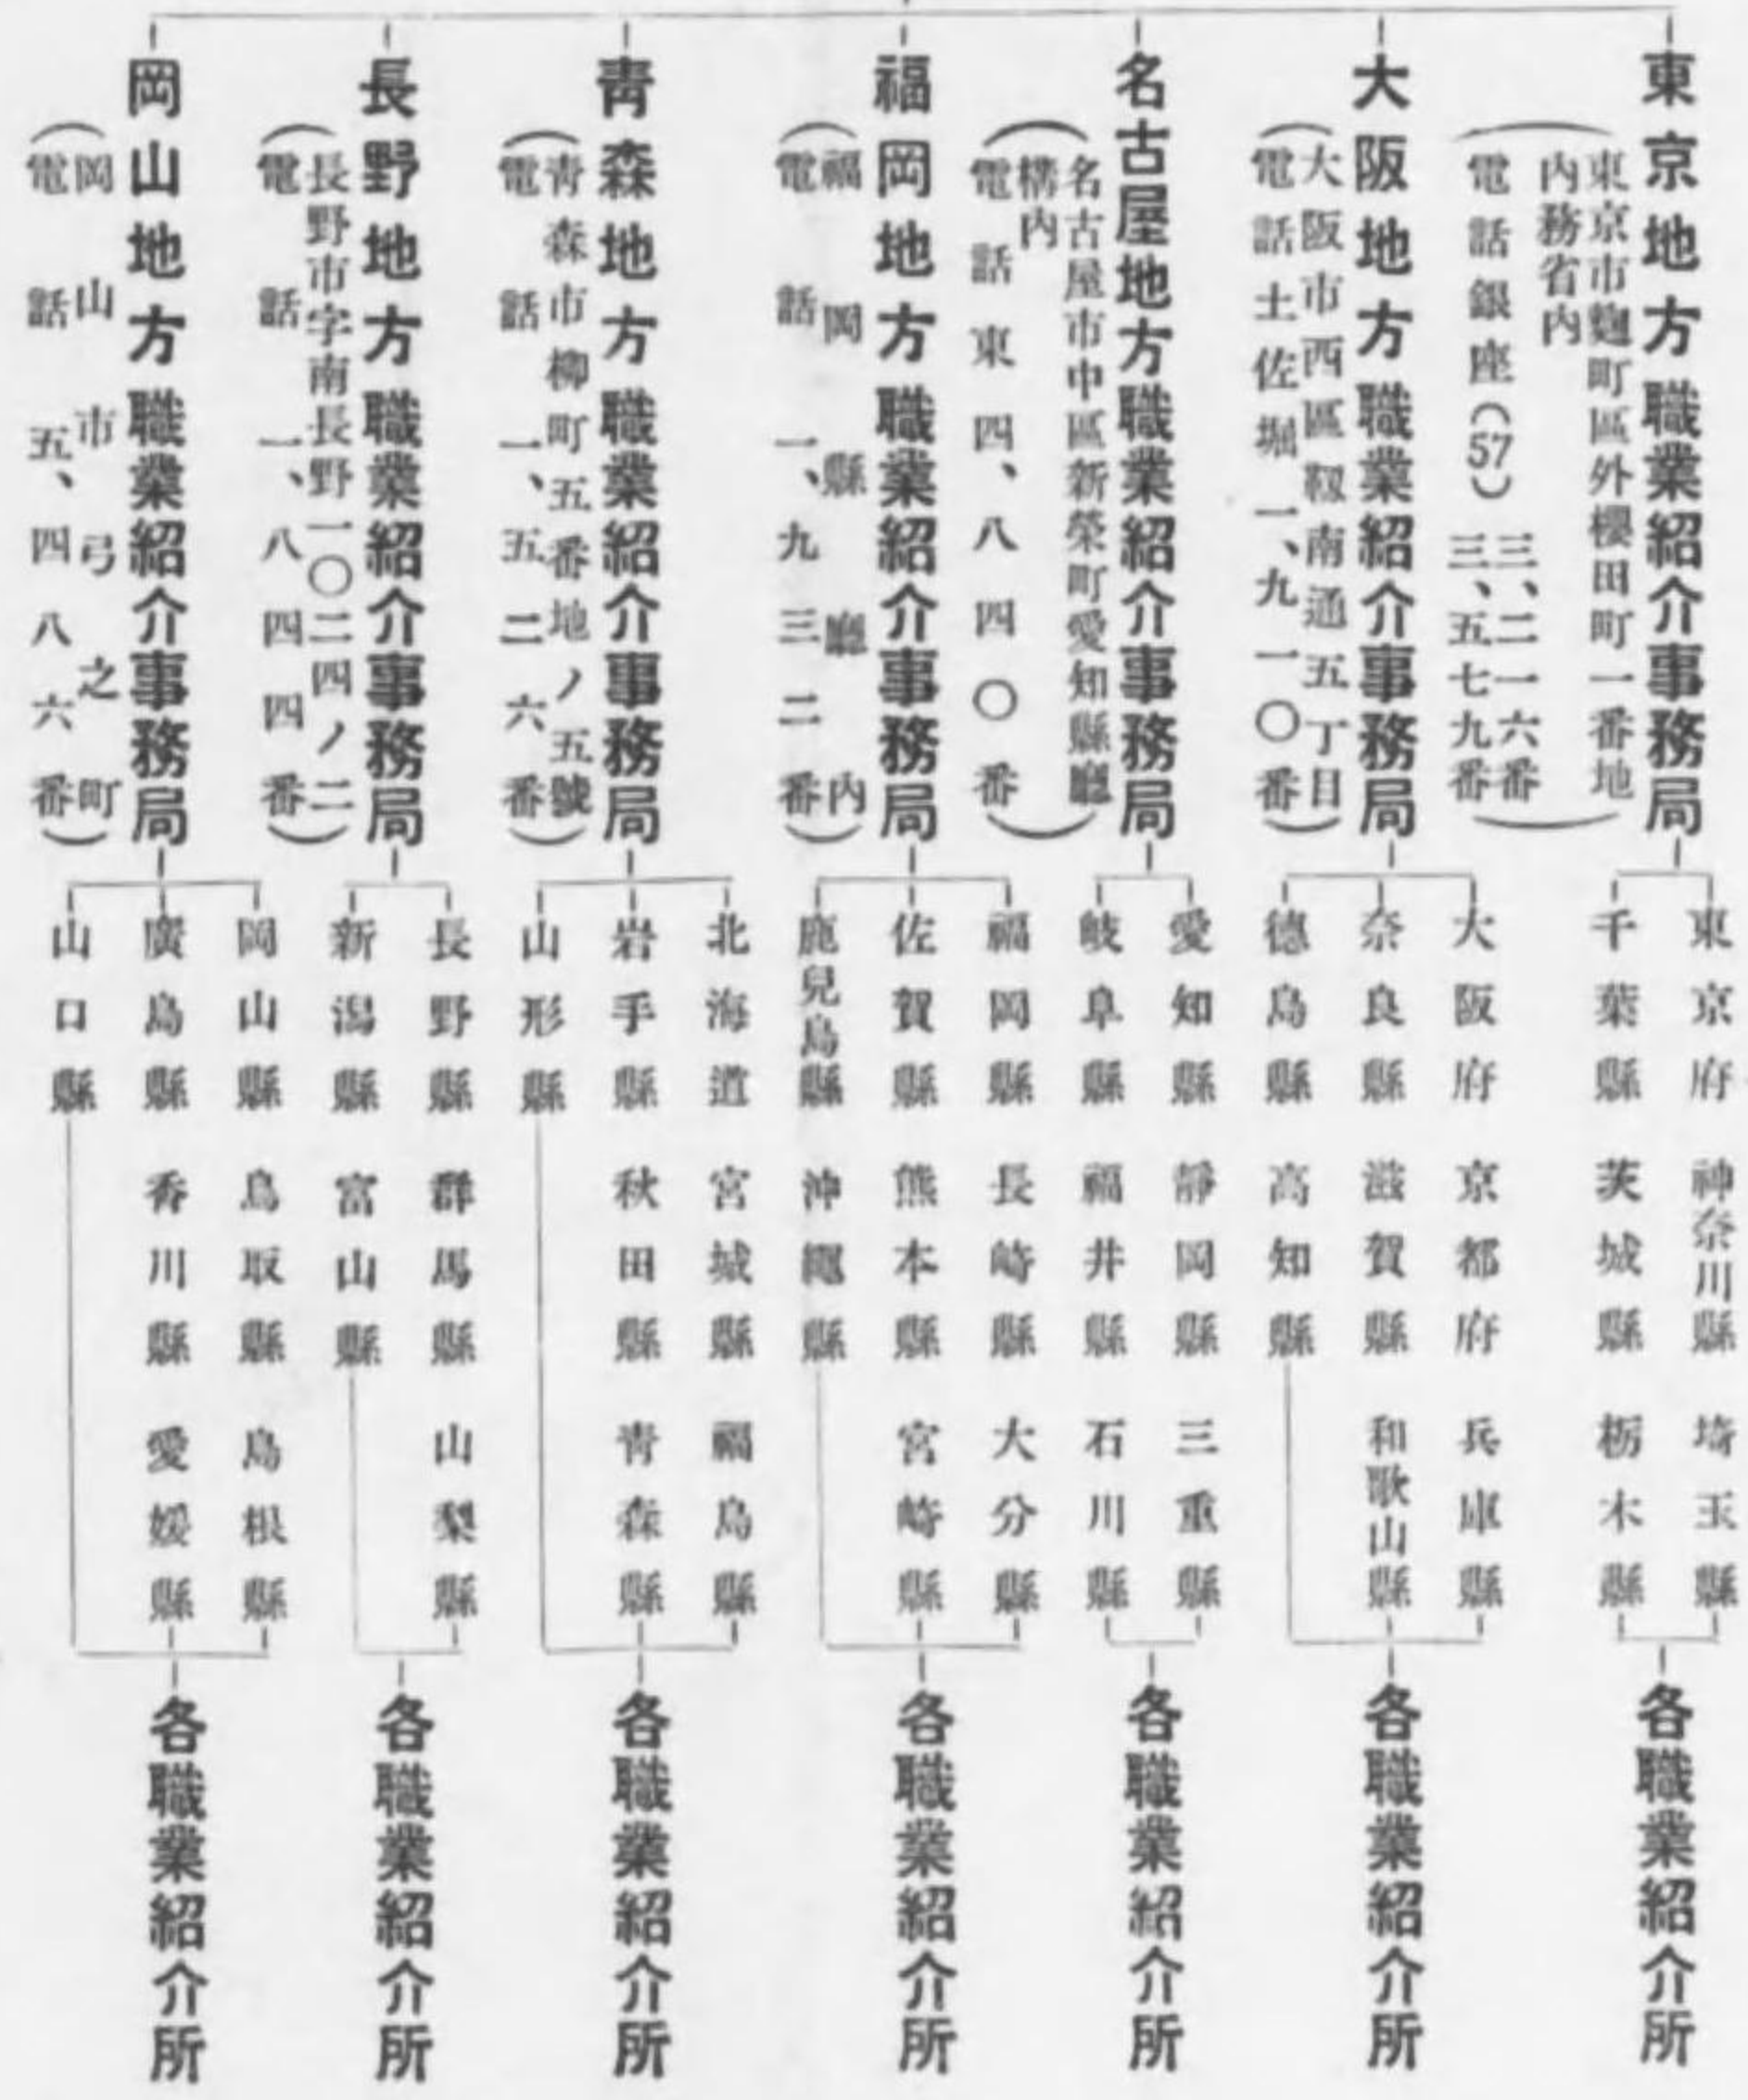 東京地方職業紹介事務局
東京市麴町區外櫻田町一番地
内務省内
電話銀座(57)三、二一六番
三、五七九番
東京府 神奈川縣 埼玉縣
千葉縣 茨城縣 栃木縣
各職業紹介所
大阪地方職業紹介事務局
大阪市西區靱南通五丁目
電話土佐堀一、九一〇番
大阪府 京都府 兵庫縣
奈良縣 滋賀縣 和歌山縣
德島縣 高知縣
各職業紹介所
名古屋地方職業紹介事務局
名古屋市中區新榮町愛知縣廳
構内
電話東四、八四〇番
愛知縣 靜岡縣 三重縣
岐阜縣 福井縣 石川縣
各職業紹介所
福岡地方職業紹介事務局
福岡縣廳内
電話一、九三二番
福岡縣 長崎縣 大分縣
佐賀縣 熊本縣 宮崎縣
鹿兒島縣 沖繩縣
各職業紹介所
靑森地方職業紹介事務局
靑森市柳町五番地ノ五號
電話一、五二六番
北海道 宮城縣 福島縣
岩手縣 秋田縣 靑森縣
山形縣
各職業紹介所
長野地方職業紹介事務局
長野市字南長野一〇二四ノ二
電話一、八四四番
長野縣 群馬縣 山梨縣
新潟縣 富山縣
各職業紹介所
岡山地方職業紹介事務局
岡山市弓之町
電話五、四八六番
岡山縣 鳥取縣 島根縣
廣島縣 香川縣 愛媛縣
山口縣
各職業紹介所